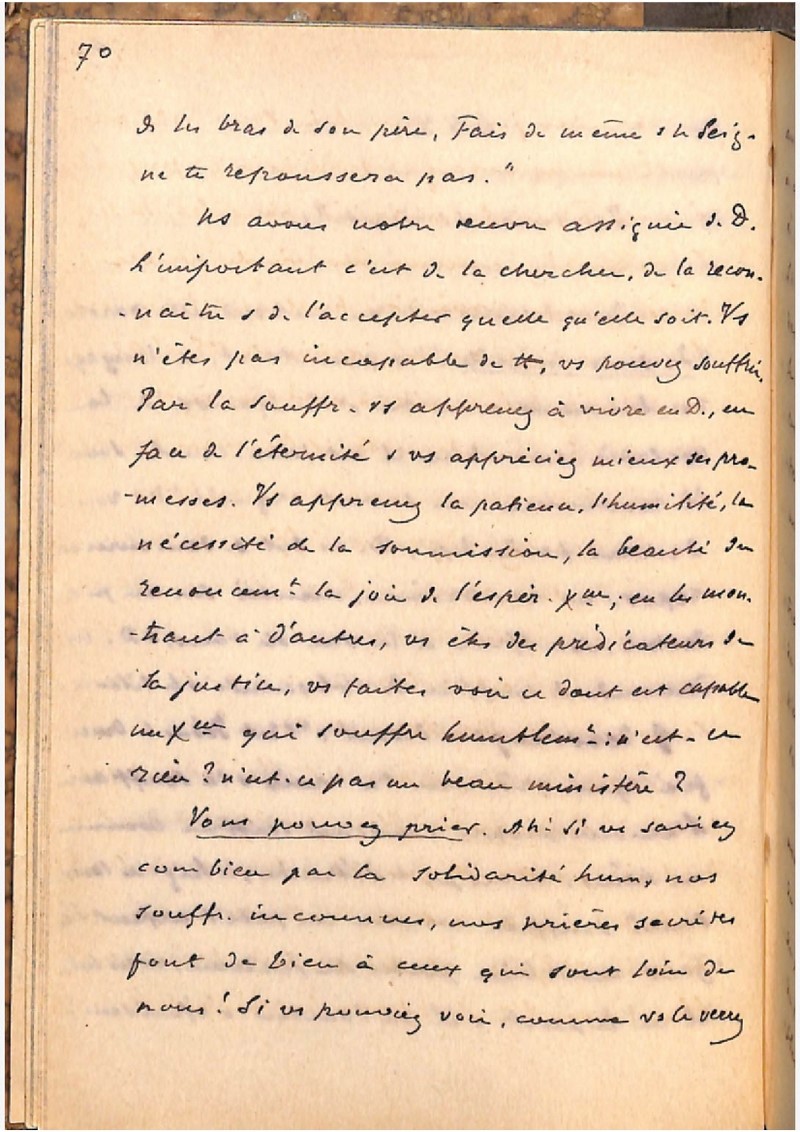 70
ds les bras de son père, Fais de même & le Seig.
ne te repoussera pas."
Ns avons notre oeuvre assignée d. D.
L'important c'est de la chercher, de la recon-
-naître & de l'accepter quelle qu'elle soit. Vs
n'êtes pas incapable de tt, vs pouvez souffrir.
Par la souffr. vs apprenez à vivre en D., en
face de l'éternité & vs appréciez mieux ses pro-
-messes. Vs apprenez la patience, l'humilité, la
nécessité de la soumission, la beauté du
renoncemt. la joie de l'espér. Xnne; en les mon-
-trant à d'autres, vs êtes des prédicateurs de
la justice, vs faites voir ce dont est capable
un Xien qui souffre humblemt.: n'est-ce
rien? n'est-ce pas un beau ministère?
Vous pouvez prier. Ah! Si vs saviez
combien par la solidarité hum. nos
souffr. inconnues, nos prières secrètes
font de bien à ceux qui sont loin de
nous! Si vs pouviez voir, comme vs le verrez